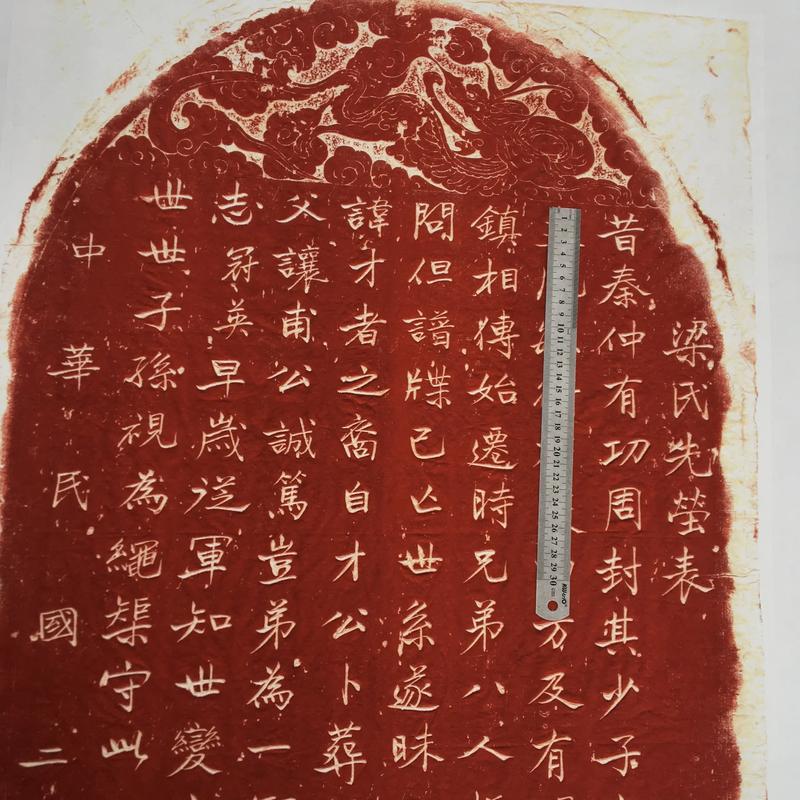 梁氏先塋表
昔秦仲有功周封其少子
方及有
鎮相傳始遷時兄弟八人
問但譜牒已亡世系遂昧
諱才者之裔自才公卜葬
父讓甫公誠篤豈弟為一
志冠英早歲從軍知世變
世世子孫視為繩榘守此
中華民國二
1 2 3 4 5 6 7 8 9 10 11 12 13 14 15 16 17 18 19 20 21 22 23 24 25 26 27 28 29 30 cm